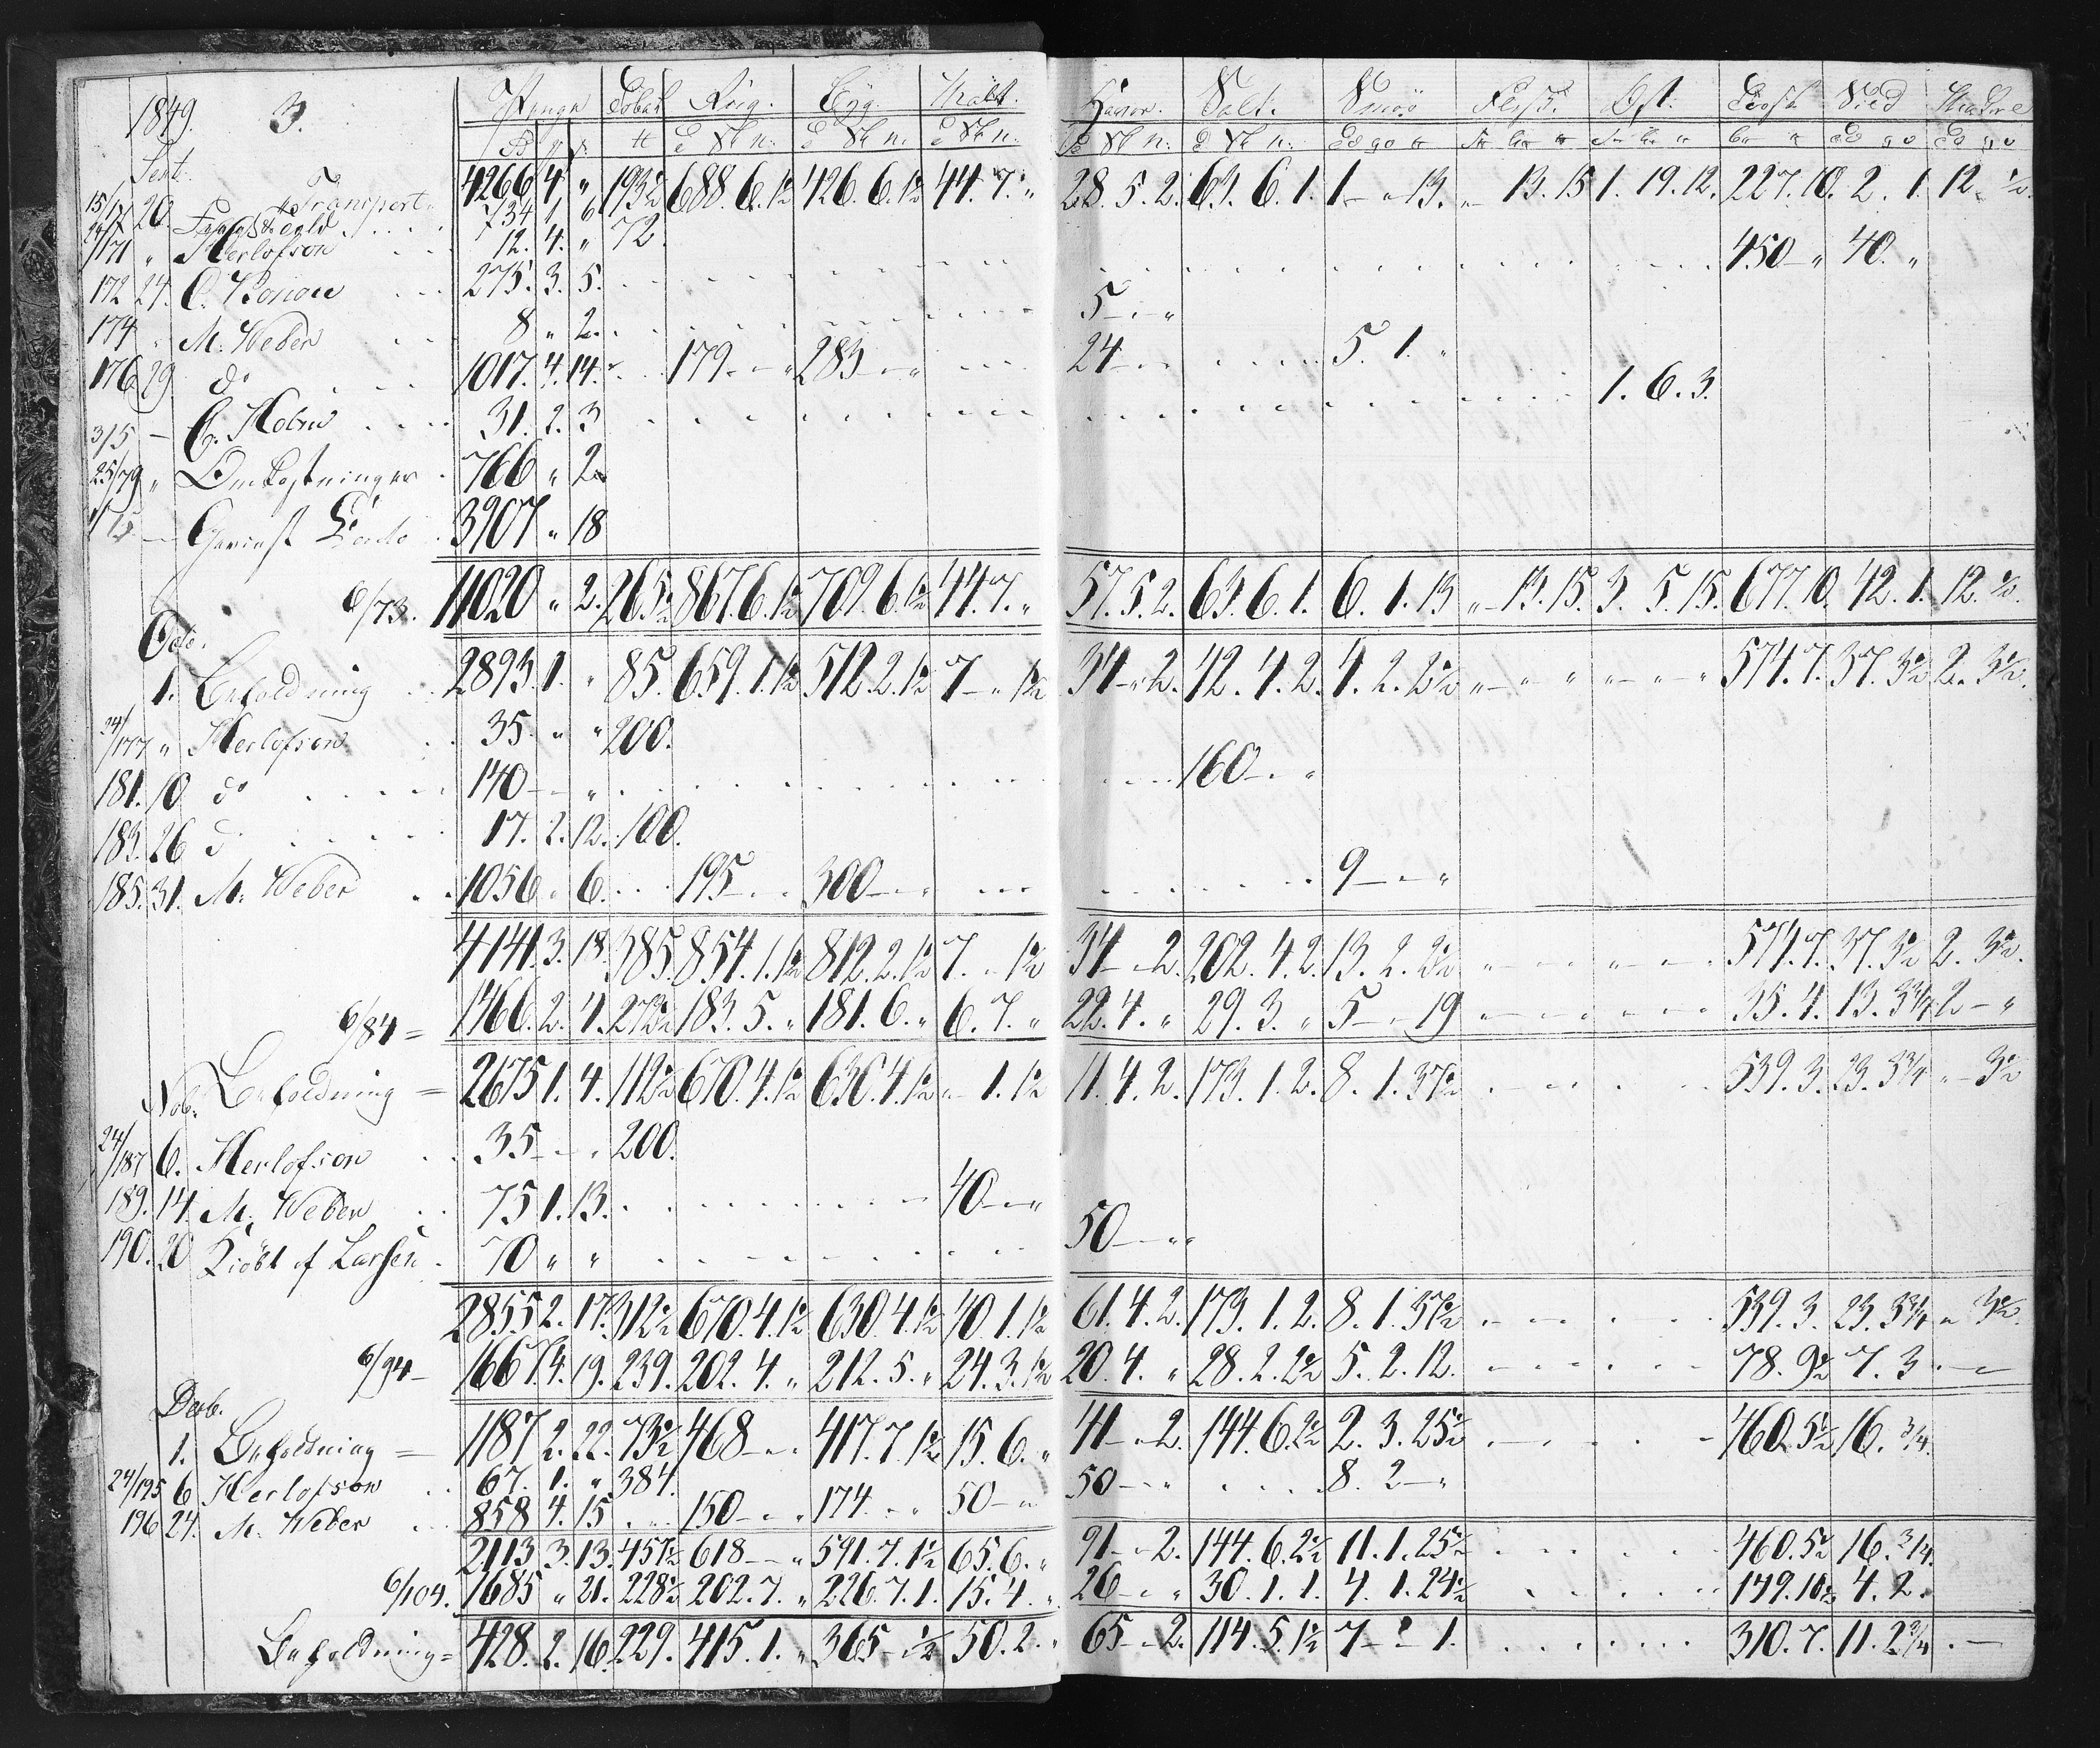 1849. 3. Penge Tobak Rug. Byg. Malt. Havre. Salt. Smör Flesk. Ost. Ved
Sept.
Transport 4266 4 " 193½ 688.6.1½ 426.6.1½ 44.7." 28.5.2. 63.6.1. 1 - " 13. " - 13.15 1.19.12. 227.10. 2.1. 12.½.
15/ 20. 734 1, 6
24/171 " Herlofson 12.4." 72.
172 24. C. Konow 275.3.5. 450 - " 40. "
174 " M. Weber 8 " 2. 5 - " "
176 29 do 1017.4.14. 179. - " 283 - " 24 - " 5.1. "
3/5 - C. Holm 31.2.3 1.6.3.
25/79 " Omkostninger 766 " 2
1/15 - Gevinst Conto 3907 " 18
6/73. 11020 " 2. 265½ 867.6.1½ 709.6.1½ 44.7." 57.5.2. 63.6.1. 6.1.13 " - 13.15. 3.5.15. 677.10. 42.1. 12.½.
Octo.
1. Beholdning 2893.1. " 85. 659.1.1½ 512.2.1½ 7 - " 1½ 34 - " 2. 42.4.2. 4.2.2½ 574.7. 37.3½ 2.3½.
24/177 " Herlofson 35. " " 200.
181. 10 do 140 - " 160 - " "
183. 26 do 17.2.12. 100.
185. 31. M. Weber 1056 " 6. 195 - " 300 - " 9 - " "
4141.3.18. 385. 854.1.1½ 812.2.1½ 7. " 1½ 34 - " 2. 202.4.2. 13.2.2½ 574.7. 37.3½ 2.3½.
6/84 = 1466.2.4. 272½ 183.5." 181.6." 6.7." 22.4." 29.3." 5 - " 19 35.4. 13.3¾ 2 - "
Nob. Beholdning = 2675 1.4. 112½ 670.4.1½ 630.4.1½ " - 1.1½ 11.4.2. 173.1.2. 8.1.37½ 539.3. 23.3¾ " - 3½
24/187 6. Herlofson 35 - " 200.
189. 14. M. Weber 75 1.13. 40 - "
190. 20 Kiöbt af Larsen. 70 " " 50 - " "
2855 2.17. 312½ 670.4.1½ 630.4.1½ 40.1.1½ 61.4.2. 173.1.2. 8.1.37½ 539.3. 23.3¾ " 3½.
6/94 - 1667.4.19. 239. 202.4." 212.5." 24.3.1½ 20.4." 28.2.2½ 5.2.12. 78.9½ 7.3
Decb.
1. Beholdning = 1187 2.22. 73½ 468 - " 417.7.1½ 15.6." 41 - " 2. 144.6.2½ 2.3.25½ 460.5½ 16.¾.
24/195 6 Herlofson 67.1." 384.
196 24. M. Weber 858 4.15 150 - " 174 - " 50 - " 50 - " 8.2 - "
2113 3.13. 457½ 618 - " 591.7.1½ 65.6." 91 - " 2. 144.6.2½ 11.1.25½ 460.5½ 16.¾.
6/104. 1685 " 21. 228½ 202.7." 226.7.1. 15.4." 26 - " " 30.1.1. 4.1.24½ 149.10½ 4.2.
Beholdning = 428.2.16. 229. 415.1." 365 - " ½ 50.2." 65 - " 2. 114.5.1½ 7 - " 1. 310.7. 11.2¾